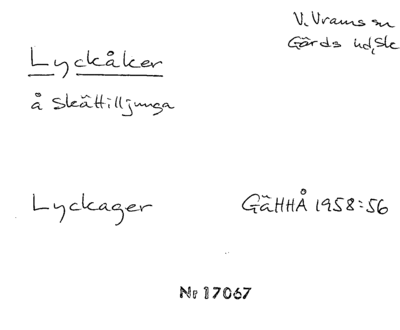 V. Vrams sn
Gärds hd, Sk
Lyckåker
å Skättilljunga
Lyckager
GäHHÅ 1958:56
Nr 17067